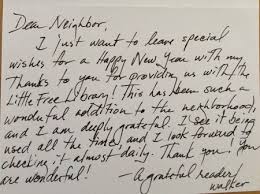 Dear Neighbor,
I just want to leave special
wishes for a Happy New Year with my
Thanks to you for providing us with the
Little Free Library! This has been such a
wonderful addition to the neighborhood,
and I am deeply grateful. I see it being
used all the time, and I look forward to
checking it almost daily. Thank you! You
are wonderful!
- a grateful reader/
walker